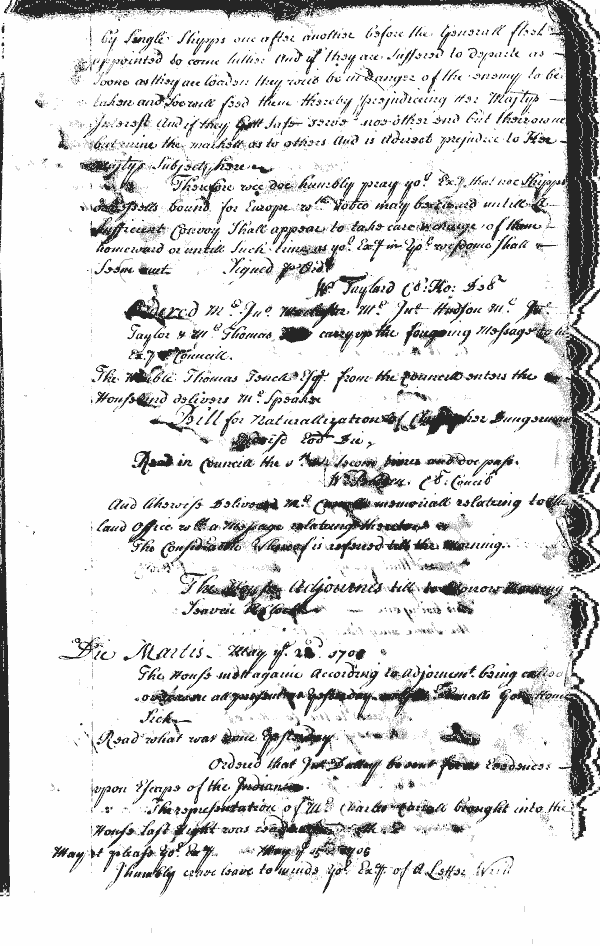 by Single Shipps one after another before the Generall fleet
appointed to come hither And if they are Suffered to departe as
soone as they are loaden they will be in danger of the enemy to be
taken and soe will feed them thereby prejudiceing Her Majtys
Interest And if they Gett Safe serve noe other end but their owne
but ruine the markett as to others And is a direct prejudice to Her
Majtys Subjects here
Therefore wee doe humbly pray yor Exy that noe Shipps
or Vessells bound for Europe wth Tobco may be cleared untill a
Sufficient Convoy Shall appear to take care & charge of them
homeward or untill Such time as yor Exy in yor wisdome shall
Seeme meet Signed p Ordr
W Taylard Cl: Ho: Delr
Ordered Mr Jno Mr Jno Hudson Mr Jno
Taylor & Mr Thomas carry up the foregoing Message to his
Exy & Councill.
The Honble Thomas Tench Esqr from the Councill enters the
House and delivers Mr Speaker
Bill for Naturallization of Dangerman
Endorsed Eod Die,
Read in Councill the second time and doe pass.
W Cl: Concil
And likewise Delivered Mr memoriall relateing to the
land Office wth a Message relateing thereto
The Consideracon whereof is referred till the morning.
The House Adjourned till to Morrow Morning
Seaven a Clock
Die Martis May ye 1706
The House mett againe According to Adjornemt. being called
over were all present as Yesterday Gone Home
Sick
Read what was done Yesterday
Ordered that Jno be sent for as Evidences
upon Escape of the Indians.
The representation of Mr Charles Carroll brought into the
House last Night was read
May it please yor Exy May ye 15th 1706
I humbly crave leave to minde yor Exy of a Letter